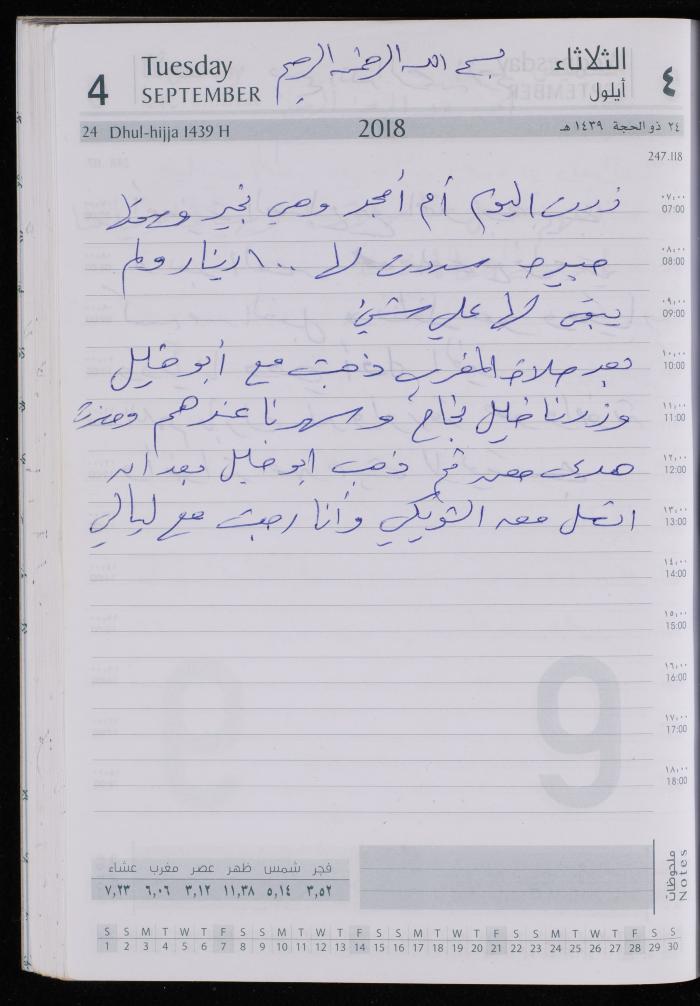 4
Tuesday
SEPTEMBER
بسم الله الرحمن الرحيم
الثلاثاء
أيلول
٤
24 Dhul-hijja 1439 H
2018
٢٤ ذو الحجة ١٤٣٩ هـ
247.118
زرت اليوم أم أمجد وهي بخير وصحتها
جيدة سددت لها ١٠٠ دينار ولم
يبقى لها علي شيئ
بعد صلاة المغرب ذهبت مع أبو خليل
وزرنا خليل نجاح وسهرنا عندهم
هدى معه ثم ذهب ابو خليل بعد ان
اتصل معه الشويكي وأنا رجعت مع ليالي
٠٧,٠٠
07:00
٠٨,٠٠
08:00
٠٩,٠٠
09:00
١٠,٠٠
10:00
١١,٠٠
11:00
١٢,٠٠
12:00
١٣,٠٠
13:00
١٤,٠٠
14:00
١٥,٠٠
15:00
١٦,٠٠
16:00
١٧,٠٠
17:00
١٨,٠٠
18:00
9
فجر شمس ظهر عصر مغرب عشاء
٣,٥٢ ٥,١٤ ١١,٣٨ ٣,١٢ ٦,٠٦ ٧,٢٣
ملاحظات
Notes
S S M T W T F S S M T W T F S S M T W T F S S M T W T F S S
1 2 3 4 5 6 7 8 9 10 11 12 13 14 15 16 17 18 19 20 21 22 23 24 25 26 27 28 29 30